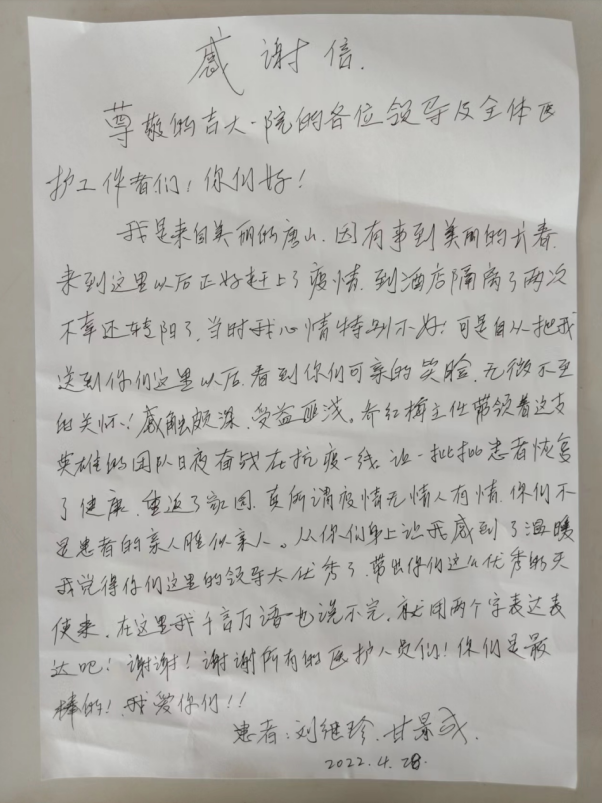 感谢信.
尊敬的吉大一院的各位领导及全体医
护工作者们,你们好!
我是来自美丽的唐山.因有事到美丽的长春.
来到这里以后正好赶上了疫情.到酒店隔离了两次
不幸还转阳了.当时我心情特别不好!可是自从把我
送到你们这里以后.看到你们可亲的笑脸.无微不至
的关怀!感触颇深.受益匪浅。乔红梅主任带领着这支
英雄的团队日夜奋战在抗疫一线.让一批批患者恢复
了健康.重返了家园.真所谓疫情无情人有情.你们不
是患者的亲人胜似亲人。从你们身上让我感到了温暖
我觉得你们这里的领导太优秀了.带出你们这么优秀的天
使来.在这里我千言万语也说不完.就用两个字表达表
达吧!谢谢!谢谢所有的医护人员们!你们是最
棒的!我爱你们!!
患者:刘继珍.甘景
2022.4.28.